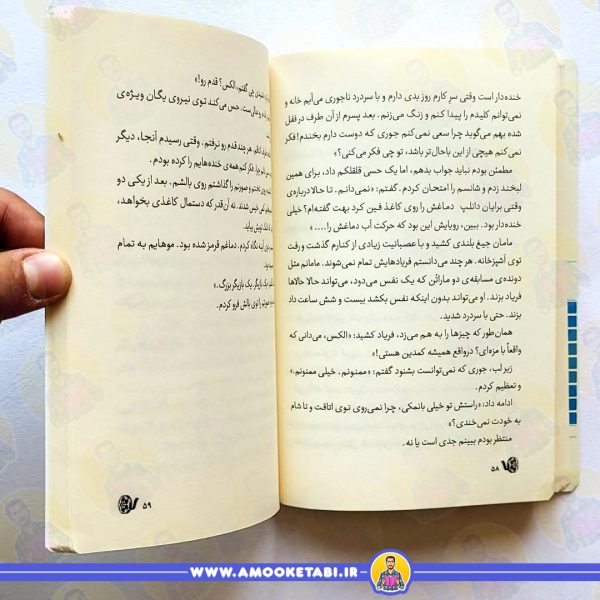 خنده‌دار است وقتی سرِ کارم روز بدی دارم و با سردرد ناجوری می‌آیم خانه و
نمی‌توانم کلیدم را پیدا کنم و زنگ می‌زنم. بعد پسرم از آن طرف در قفل
شده بهم می‌گوید چرا سعی نمی‌کنم جوری که دوست دارم بخندم! فکر
نمی‌کنم هیچی از این باحال‌تر باشد، تو چی فکر می‌کنی؟»
مطمئن بودم نباید جواب بدهم، اما یک حسی قلقلکم داد، برای همین
لبخند زدم و شانسم را امتحان کردم. گفتم: «نمی‌دانم. تا حالا درباره‌ی
وقتی برایان دانلپ دماغش را روی کاغذ فین کرد بهت گفته‌ام؟ خیلی
خنده‌دار بود. ببین، رویایش این بود که حرکت آب دماغش را....»
مامان جیغ بلندی کشید و با عصبانیت زیادی از کنارم گذشت و رفت
توی آشپزخانه. هر چند می‌دانستم فریادهایش تمام نمی‌شوند. مامانم مثل
دونده‌ی مسابقه‌ی دو ماراتُن که یک نفس می‌دود، می‌تواند حالا حالاها
فریاد بزند. او می‌تواند بدون اینکه نفس بکشد بیست و شش ساعت داد
بزند. حتی با سردرد شدید.
همان‌طور که چیزها را به هم می‌زد، فریاد کشید: «الکس، می‌دانی که
واقعاً با مزه‌ای؟ درواقع همیشه کمدین هستی!»
زیر لب، جوری که نمی‌توانست بشنود گفتم: «ممنونم. خیلی ممنونم.»
و تعظیم کردم.
ادامه داد: «راستش تو خیلی بانمکی، چرا نمی‌روی توی اتاقت و تا شام
به خودت نمی‌خندی؟»
منتظر بودم ببینم جدی است یا نه.
۵۸
چی گفتم، الکس؟ قدم رو!»
حس می‌کند توی نیروی یگان ویژه‌ی
هر چند قدم رو نرفتم. وقتی رسیدم آنجا، دیگر
فکر کنم همه‌ی خنده‌هایم را کرده بودم.
و صورتم را گذاشتم روی بالشم. بعد از یکی دو
خیس شدند. نه آن‌قدر که دستمال کاغذی بخواهد،
نگاه کردم. دماغم قرمز شده بود. موهایم به تمام
یک بازیگر. یک بازیگر بزرگ.»
را توی بالش فرو کردم.
۵۹
WWW.AMOOKETABI.IR